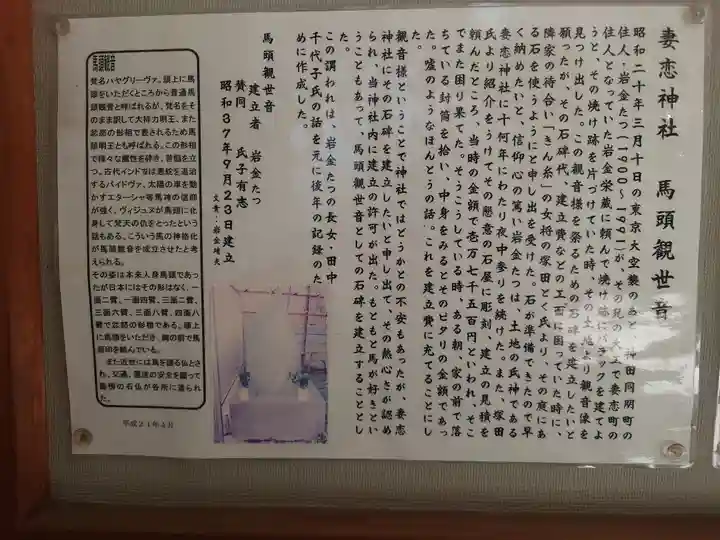 妻恋神社　馬頭観世音
昭和二十年三月十日の東京大空襲のあと、神田同朋町の
住人・岩金たつ(1900〜1991)が、その兄の大工で妻恋町の
住人となっていた岩金栄蔵に頼んで焼け跡にバラックを建てよ
うと、その焼け跡を片づけていた時、その土地より観音像を
見つけ出した。この観音様を祭るための石碑を建立したいと
願ったが、その石碑代、建立費などの工面に困っていた時に、
隣家の待合い「きん糸」の女将の塚田とく氏より、その庭にあ
る石を使うようにと申し出を受けた。石が準備できたので早
く納めたいと、信仰心の篤い岩金たつは、土地の氏神である
妻恋神社に十何年にわたり夜中参りを続けた。また、塚田
氏より紹介をうけてその懇意の石屋に彫刻、建立の見積を
頼んだところ、当時の金額で壱万七千五百円といわれ、そこ
でまた困り果てた。そうこうしている時、ある朝、家の前で落
ちている封筒を拾い、中身をみるとそのピタリの金額であっ
た。嘘のようなほんとうの話。これを建立費に充てることにし
た。
観音様ということで神社ではどうかとの不安もあったが、妻恋
神社にその石碑を建立したいと申し出て、その熱心さが認め
られ、当神社内に建立の許可が出た。もともと馬が好きとい
うこともあって、馬頭観世音としての石碑を建立することとし
た。
この謂われは、岩金たつの長女・田中
千代子氏の話を元に後年の記録のた
めに作成した。
馬頭観世音
建立者　岩金たつ
賛同　氏子有志
昭和37年9月23日建立
文責：岩金
馬頭観音
梵名ハヤグリーヴァ。頭上に馬
頭をいただくところから普通馬
頭観音と呼ばれるが、梵名をそ
のまま訳して大持力明王、また
忿怒の形相で表されるため馬
頭明王とも呼ばれる。この形相
で様々な魔性を砕き、苦悩を立
つ。古代インドでは悪蛇を退治
するパイドヴァ、太陽の車を動
かすエターシャ等馬神の信仰
が強く、ヴィシュヌが馬頭に化
身して梵天の仇をとったという
話もある。こういう馬の神格化
が馬頭観音を成立させたと考
えられる。
その姿は本来人身馬頭であっ
たが日本にはその形はなく、一
面二臂、一面四臂、三面二臂、
三面六臂、三面八臂、四面八
臂で忿怒の形相である。頭上
に馬頭をいただき、胸の前で馬
頭印を結んでいる。
また近世には馬を護る仏とさ
れ、交通、運送の安全を願って
路傍の石仏が各所に造られ
た。
平成21年4月